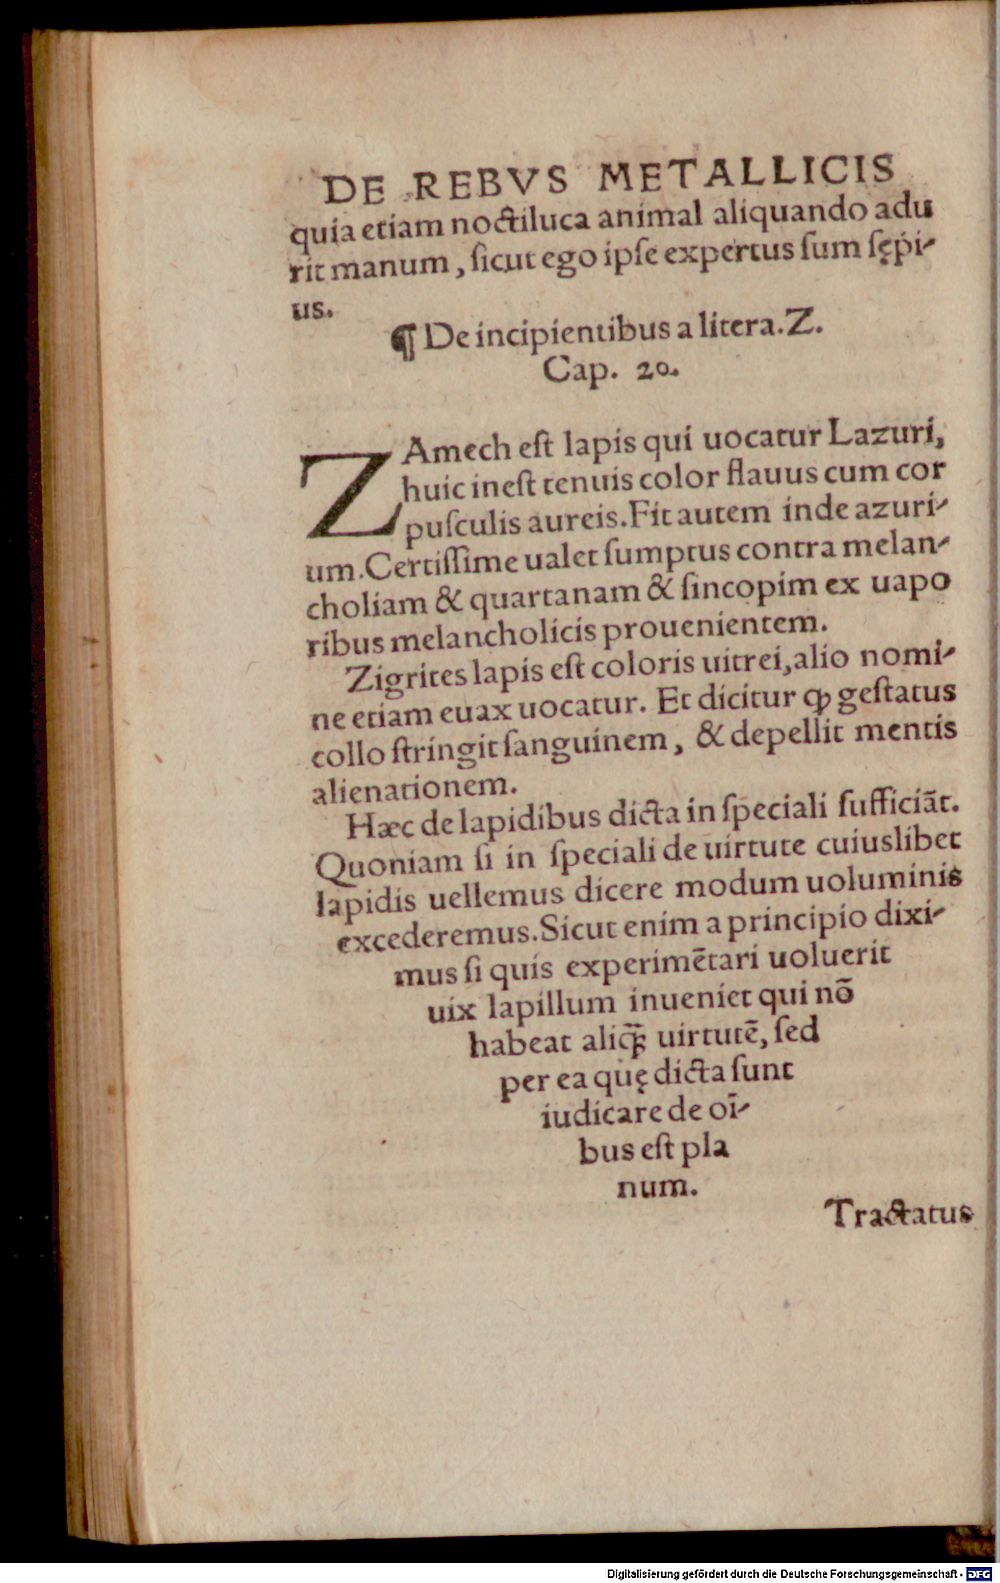 DE REBVS METALLICIS
quia etiam noctiluca animal aliquando adu
rit manum, sicut ego ipse expertus sum sępi-
us.
¶ De incipientibus a litera. Z.
Cap. 20.
ZAmech est lapis qui uocatur Lazuri,
huic inest tenuis color flauus cum cor
pusculis aureis. Fit autem inde azuri-
um. Certissime ualet sumptus contra melan-
choliam & quartanam & sincopim ex uapo
ribus melancholicis prouenientem.
Zigrites lapis est coloris uitrei, alio nomi-
ne etiam euax uocatur. Et dicitur ꝙ gestatus
collo stringit sanguinem, & depellit mentis
alienationem.
Hæc de lapidibus dicta in speciali sufficiāt.
Quoniam si in speciali de uirtute cuiuslibet
lapidis uellemus dicere modum uoluminis
excederemus. Sicut enim a principio dixi-
mus si quis experimētari uoluerit
uix lapillum inueniet qui nō
habeat aliꝗ̄ uirtutē, sed
per ea quę dicta sunt
iudicare de oī-
bus est pla
num.
Tractatus
Digitalisierung gefördert durch die Deutsche Forschungsgemeinschaft - DFG